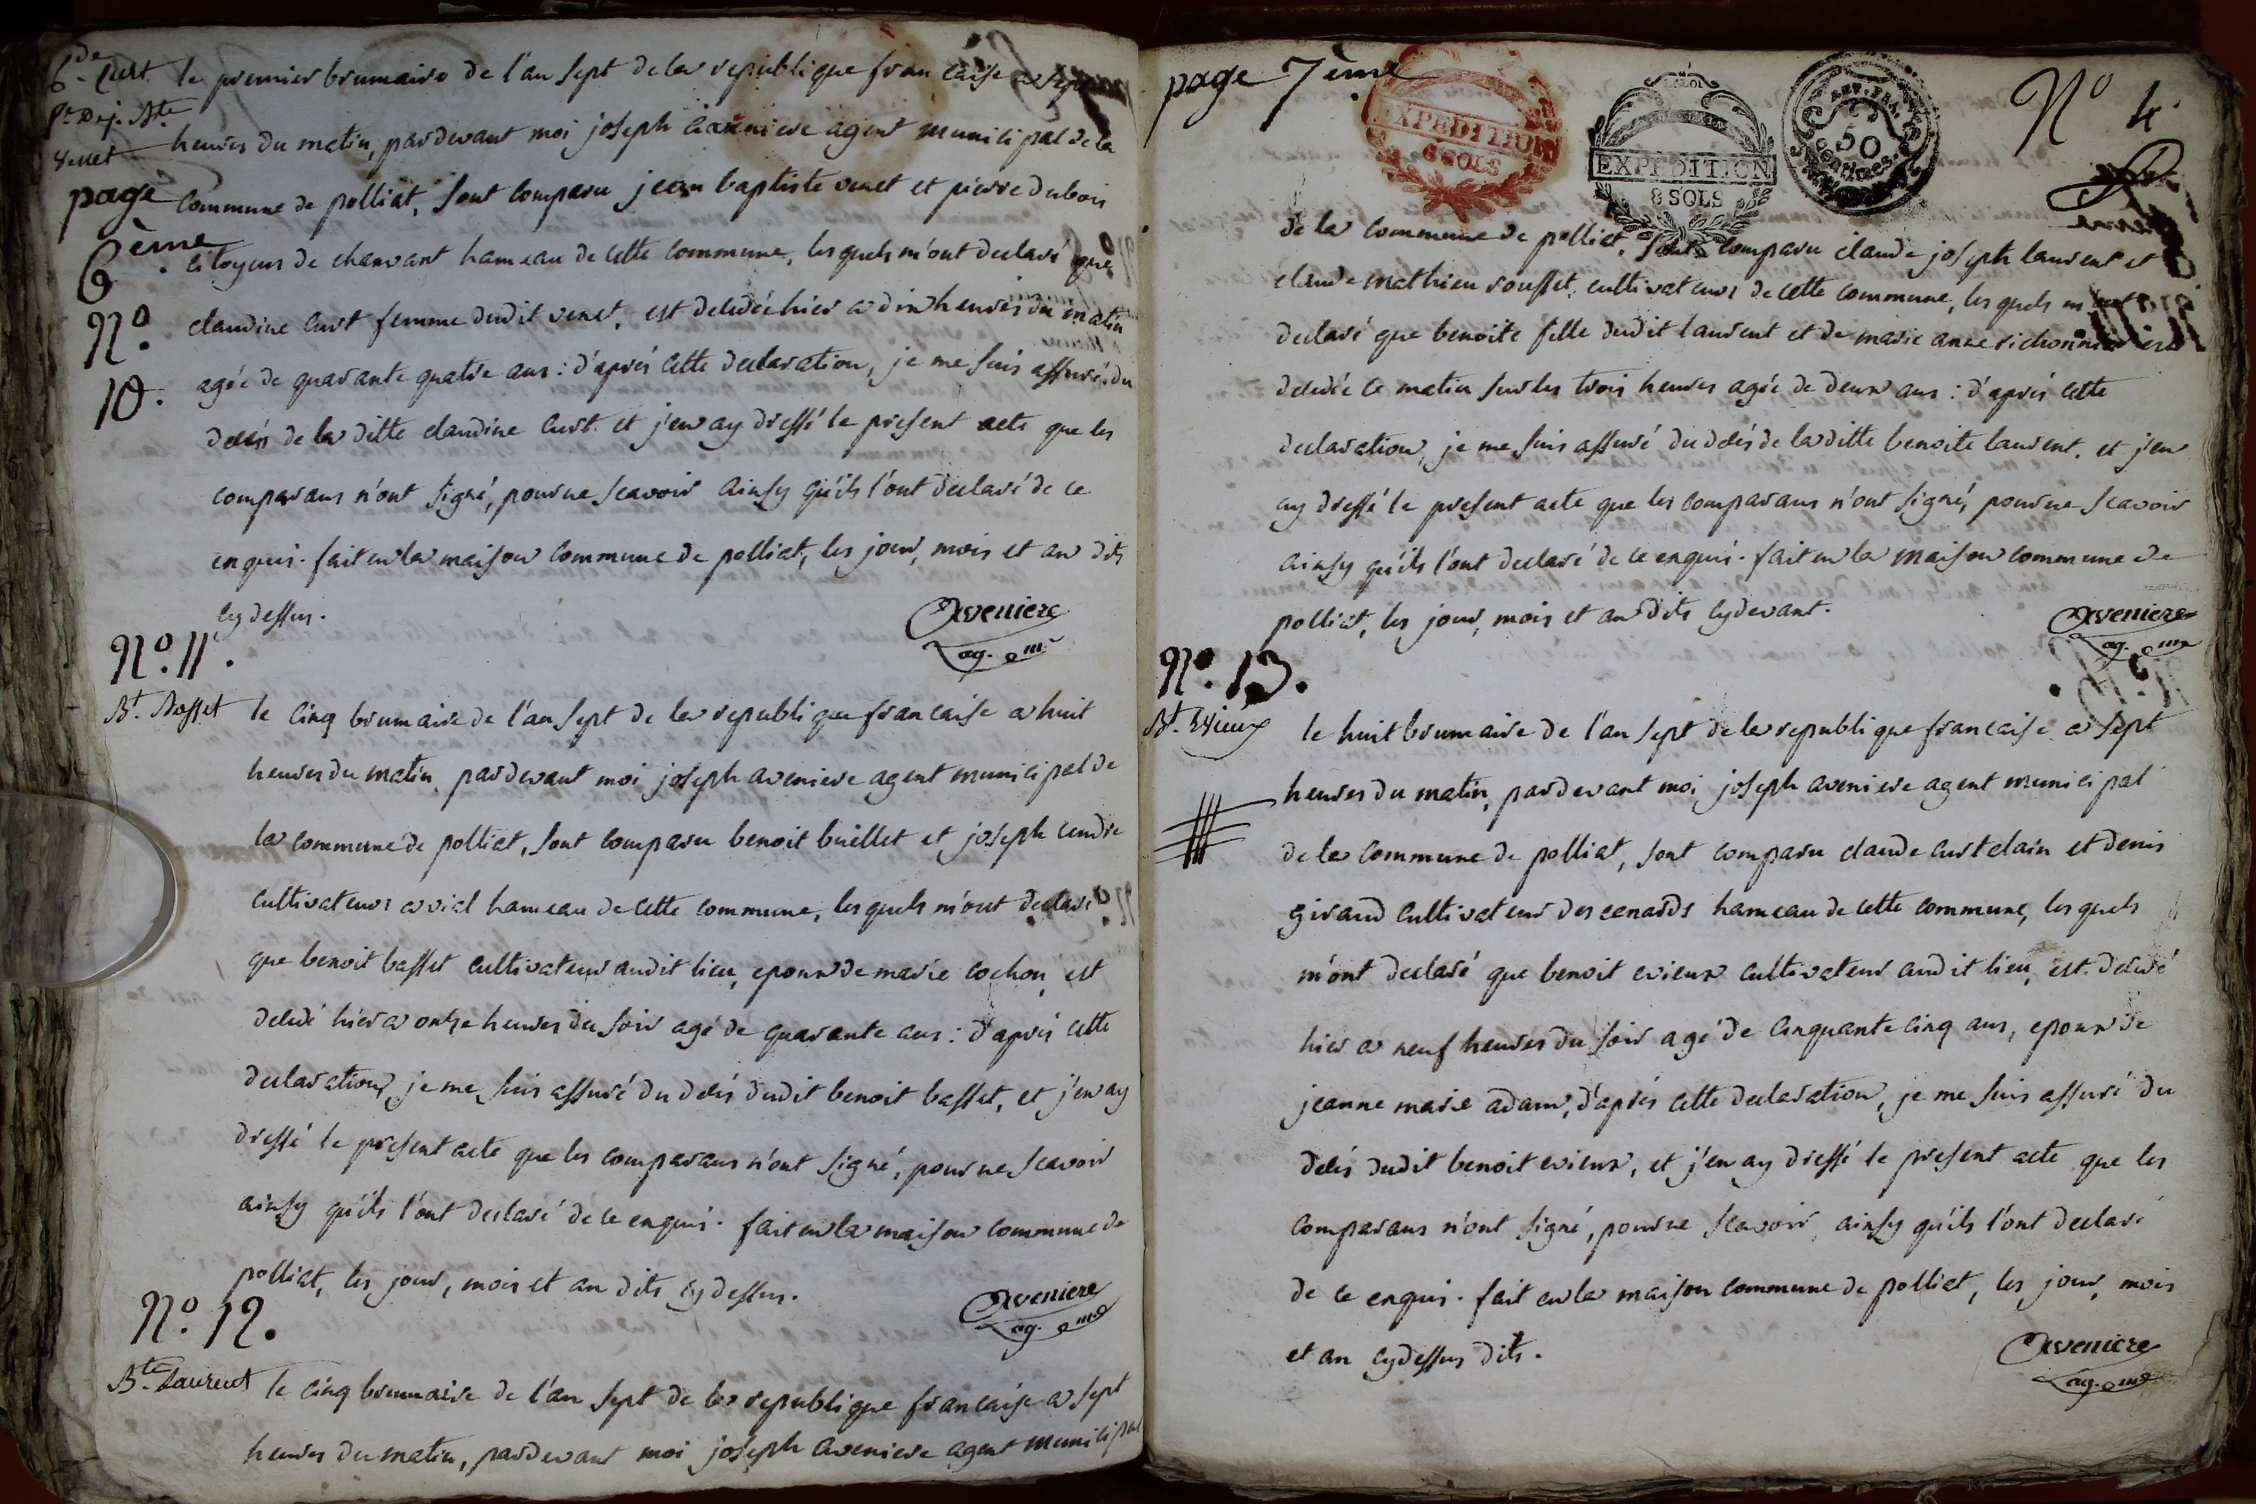 Cde Curt
fe de j. Bte
Venet
page
6ème
No.
10.
le premier brumaire de l'an sept de la republique francaise a sept
heures du matin, pardevant moi joseph aveniere agent municipal de la
commune de polliat, sont comparu jean baptiste venet et pierre dubois
citoyens de charvant hameau de cette commune, lesquels m'ont declaré que
claudine curt femme dudit venet, est decedée hier a dix heures du matin
agée de quarante quatre ans : d'aprés cette declaration, je me suis assuré du
decés de la ditte claudine curt. et j'en ay dressé le present acte que les
comparans n'ont signé, pour ne scavoir ainsy qu'ils l'ont declaré de ce
enquis. fait en la maison commune de polliat, les jour, mois et an dits
cydessus.
Aveniere
ag. m
No. 11.
Bt. Basset
le cinq brumaire de l'an sept de la republique francaise a huit
heures du matin, pardevant moi joseph aveniere agent municipal de
la commune de polliat, sont comparu benoit buellet et joseph cendre
cultivateurs a vial hameau de cette commune, lesquels m'ont declaré
que benoit basset cultivateur audit lieu, epoux de marie cochon, est
decedé hier a onze heures du soir agé de quarante ans : d'aprés cette
declaration, je me suis assuré du decés dudit benoit basset, et j'en ay
dressé le present acte que les comparans n'ont signé, pour ne scavoir
ainsy qu'ils l'ont declaré de ce enquis. fait en la maison commune de
polliat, les jour, mois et an dits cydessus.
Aveniere
ag. m
No. 12.
Bte. Laurent
le cinq brumaire de l'an sept de la republique francaise a sept
heures du matin, pardevant moi joseph aveniere agent municipal
page 7ème
EXPEDITION
8 SOLS
LA LOI
EXPEDITION
8 SOLS
REP. FRA.
50
centimes
No 4
de la commune de polliat, sont comparu claude joseph laurent et
claude mathieu rousset, cultivateurs de cette commune, lesquels m'ont
declaré que benoite fille dudit laurent et de marie anne richonnier est
decedée ce matin sur les trois heures agée de deux ans : d'aprés cette
declaration, je me suis assuré du decés de la ditte benoite laurent. et j'en
ay dressé le present acte que les comparans n'ont signé, pour ne scavoir
ainsy qu'ils l'ont declaré de ce enquis. fait en la maison commune de
polliat, les jour, mois et an dits cydevant.
Aveniere
ag. m
No. 13.
Bt. Evieux
le huit brumaire de l'an sept de la republique francaise a sept
heures du matin, pardevant moi joseph aveniere agent municipal
de la commune de polliat, sont comparu claude curt clain et denis
girand cultivateur des cenards hameau de cette commune, lesquels
m'ont declaré que benoit evieux cultivateur audit lieu, est decedé
hier a neuf heures du soir agé de cinquante cinq ans, epoux de
jeanne marie adam, d'aprés cette declaration, je me suis assuré du
decés dudit benoit evieux, et j'en ay dressé le present acte que les
comparans n'ont signé, pour ne scavoir, ainsy qu'ils l'ont declaré
de ce enquis. fait en la maison commune de polliat, les jour, mois
et an cydessus dits.
Aveniere
ag. m